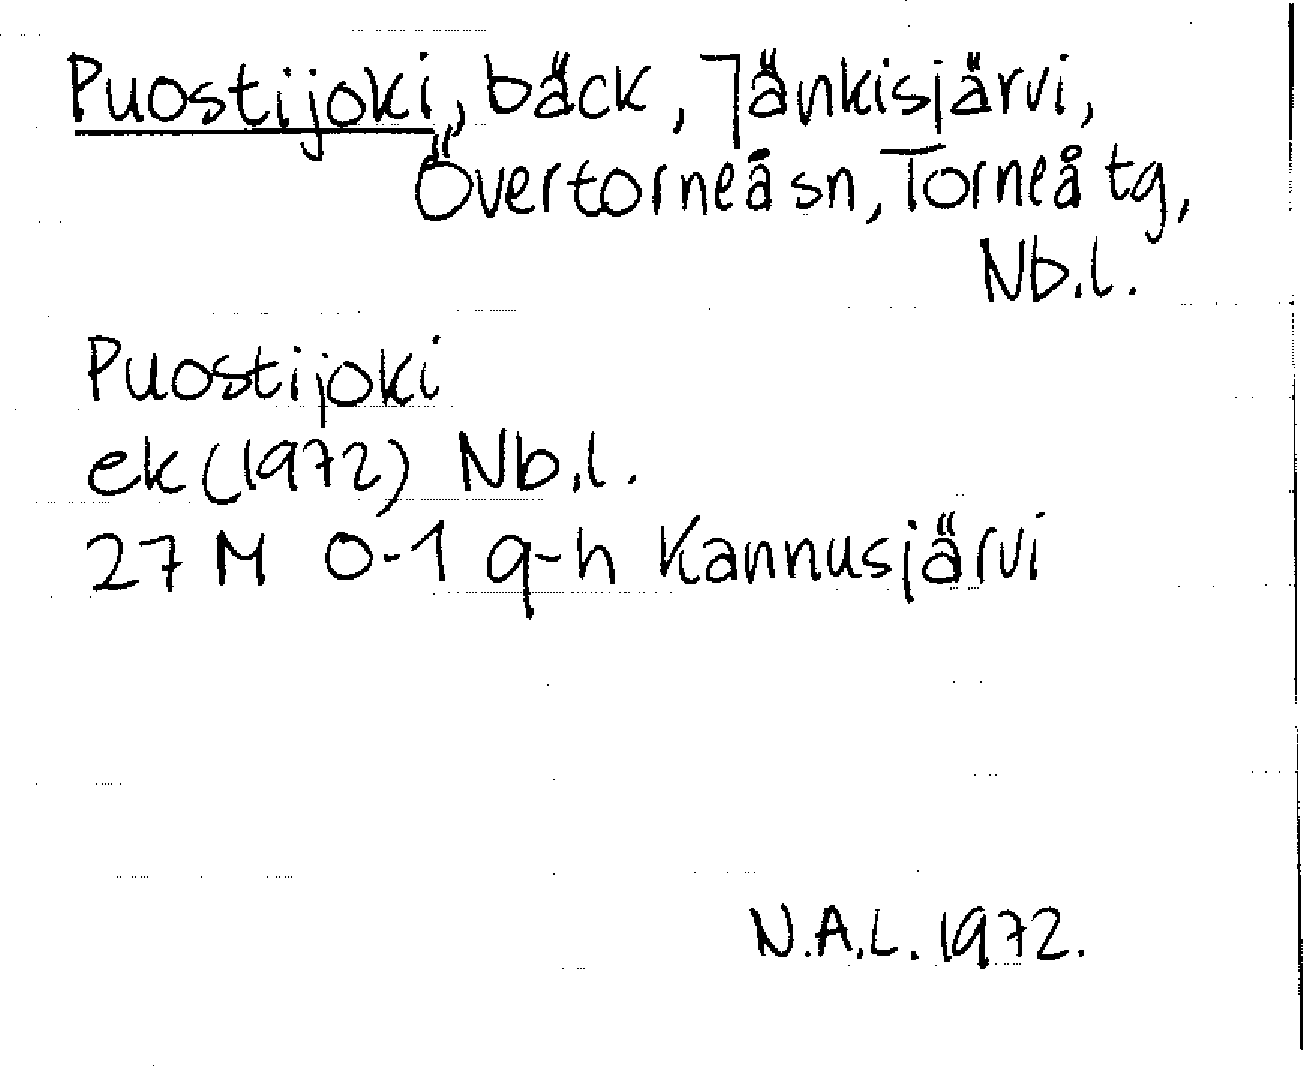 Puostijoki, bäck, Jänkisjärvi,
Övertorneå sn, Torneå tg,
Nb.l.
Puostijoki
ek (1972) Nb.l.
27 M 0-1 g-h Kannusjärvi
N.A.L. 1972.